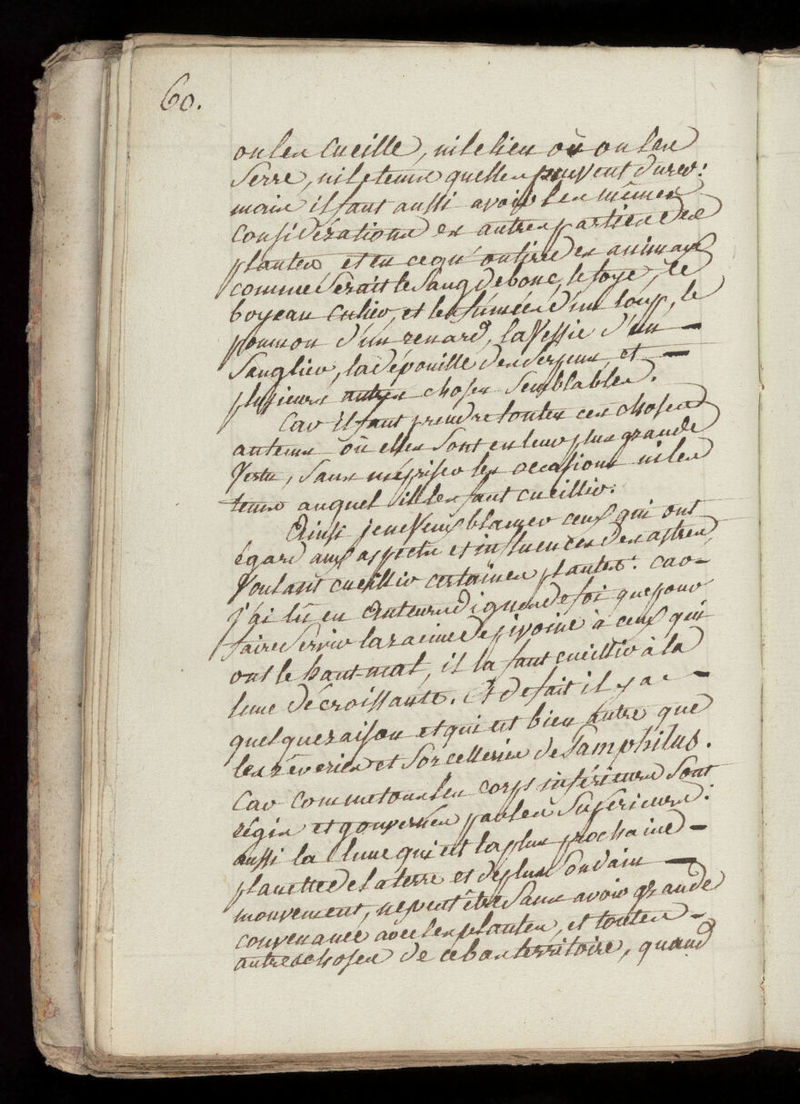 60.
on les cueille, ni le lieu où on les
serre, ni le tems quelles peuvent durer:
mais il faut aussi avoir les mêmes
considérations es autres parties des
plantes et en ce qu'on tire des animaux
comme seroit le sang de bouc, le foye, le
boyeau culier, et les fumées d'un loup, le
poumon d'un renard, la vessie d'un
sanglier, la dépouille des serpens, et
plusieurs autres choses semblables.
Car il faut prendre toutes ces choses
au tems où elles sont en leur plus grande
vertu, sans mépriser les occasions ni les
tems auquel il les faut cueillir.
Ainsi je ne veux blamer ceux qui ont
égard aux aspects et influences des astres,
voulant cueillir certaines plantes: car
j'ai lû en auteurs dignes de foi que pour
faire servir la racine de pivoine à ceux qui
ont le haut mal, il la faut cueillir à la
lune décroissante. Et de fait il y a
quelque raison et qui est bien autre que
les rêveries et sorcelleries de Pamphilus.
Car comme tous les corps inférieurs sont
régis et gouvernés par les supérieurs:
aussi la lune qui est la plus prochaine
planette de la terre et de plus soudain
mouvement, ne peut être sans avoir grande
convenance avec les plantes, et toutes
autres choses de ce bas territoire, quand